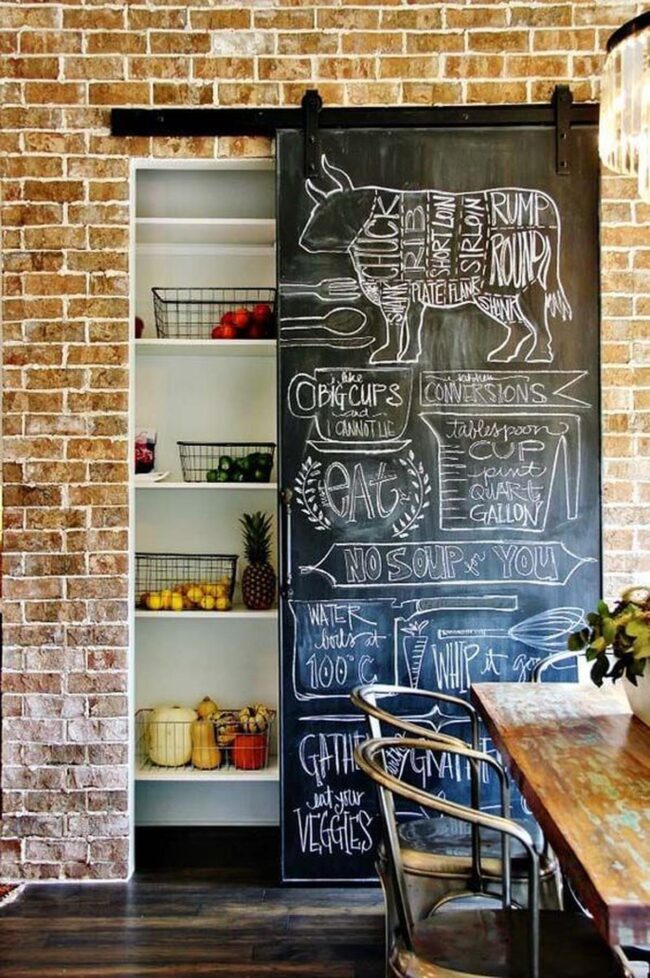 CHUCK
RIB
SHORTLOIN
SIRLOIN
RUMP
ROUND
SHANK
PLATE
FLANK
SHANK
I like
BIG CUPS
and
I CANNOT LIE
kitchen
CONVERSIONS
tablespoon
CUP
pint
QUART
GALLON
EAT
NO SOUP for YOU
WATER
boils at
100°C
WHIP it
GATHER
eat your
VEGGIES